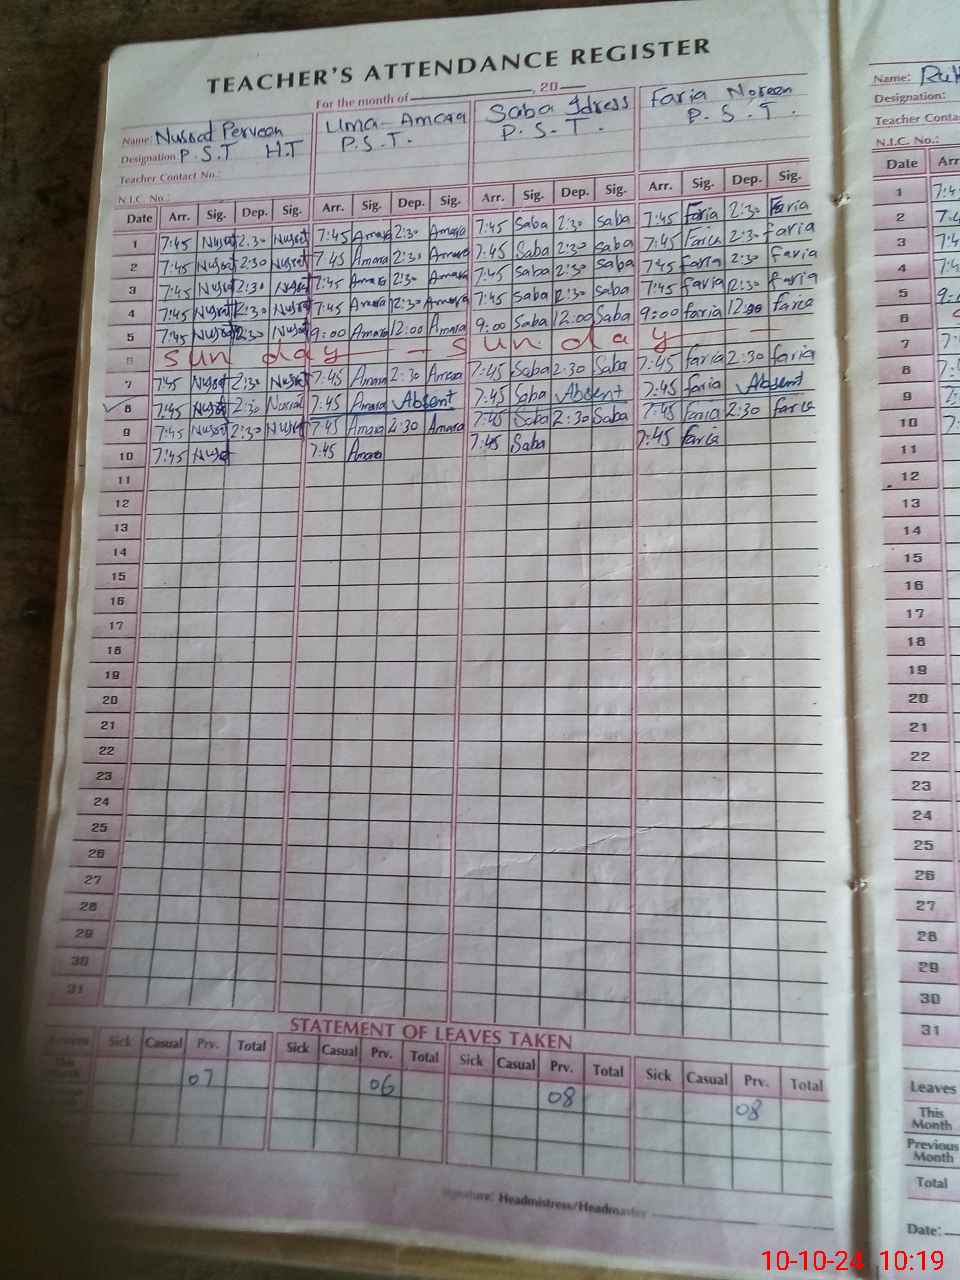 TEACHER'S ATTENDANCE REGISTER
For the month of , 20
Name: Nussrat Perveen Uma-Amara Saba Idress Faria Noreen
Designation: P.S.T H.T P.S.T. P.S.T. P.S.T.
Teacher Contact No.:
N.I.C. No.:
Date Arr. Sig. Dep. Sig. Arr. Sig. Dep. Sig. Arr. Sig. Dep. Sig. Arr. Sig. Dep. Sig.
1 7:45 Nusrat 2:30 Nusrat 7:45 Amara 2:30 Amara 7:45 Saba 2:30 Saba 7:45 Faria 2:30 Faria
2 7:45 Nusrat 2:30 Nusrat 7:45 Amara 2:30 Amara 7:45 Saba 2:30 Saba 7:45 Faria 2:30 faria
3 7:45 Nusrat 2:30 Nusrat 7:45 Amara 2:30 Amara 7:45 Saba 2:30 Saba 7:45 faria 2:30 faria
4 7:45 Nusrat 2:30 Nusrat 7:45 Amara 2:30 Amara 7:45 Saba 2:30 Saba 7:45 faria 2:30 faria
5 7:45 Nusrat 2:30 Nusrat 9:00 Amara 12:00 Amara 9:00 Saba 12:00 Saba 9:00 faria 12:00 faria
6 Sunday - Sunday -
7 7:45 Nusrat 2:30 Nusrat 7:45 Amara 2:30 Amara 7:45 Saba 2:30 Saba 7:45 faria 2:30 faria
8 7:45 Nusrat 2:30 Nusrat 7:45 Amara Absent 7:45 Saba Absent 7:45 faria Absent
9 7:45 Nusrat 2:30 Nusrat 7:45 Amara 2:30 Amara 7:45 Saba 2:30 Saba 7:45 Faria 2:30 faria
10 7:45 Nusrat 7:45 Amara 7:45 Saba 7:45 faria
11
12
13
14
15
16
17
18
19
20
21
22
23
24
25
26
27
28
29
30
31
STATEMENT OF LEAVES TAKEN
Leaves Sick Casual Prv. Total Sick Casual Prv. Total Sick Casual Prv. Total Sick Casual Prv. Total
This Month 07 06 08 08
Signature: Headmistress/Headmaster
Name:
Designation:
Teacher Conta
N.I.C. No.:
Date Arr
1 7:4
2
3
4
5
6
7
8
9
10
11
12
13
14
15
16
17
18
19
20
21
22
23
24
25
26
27
28
29
30
31
Leaves
This Month
Previous Month
Total
Date:
10-10-24 10:19